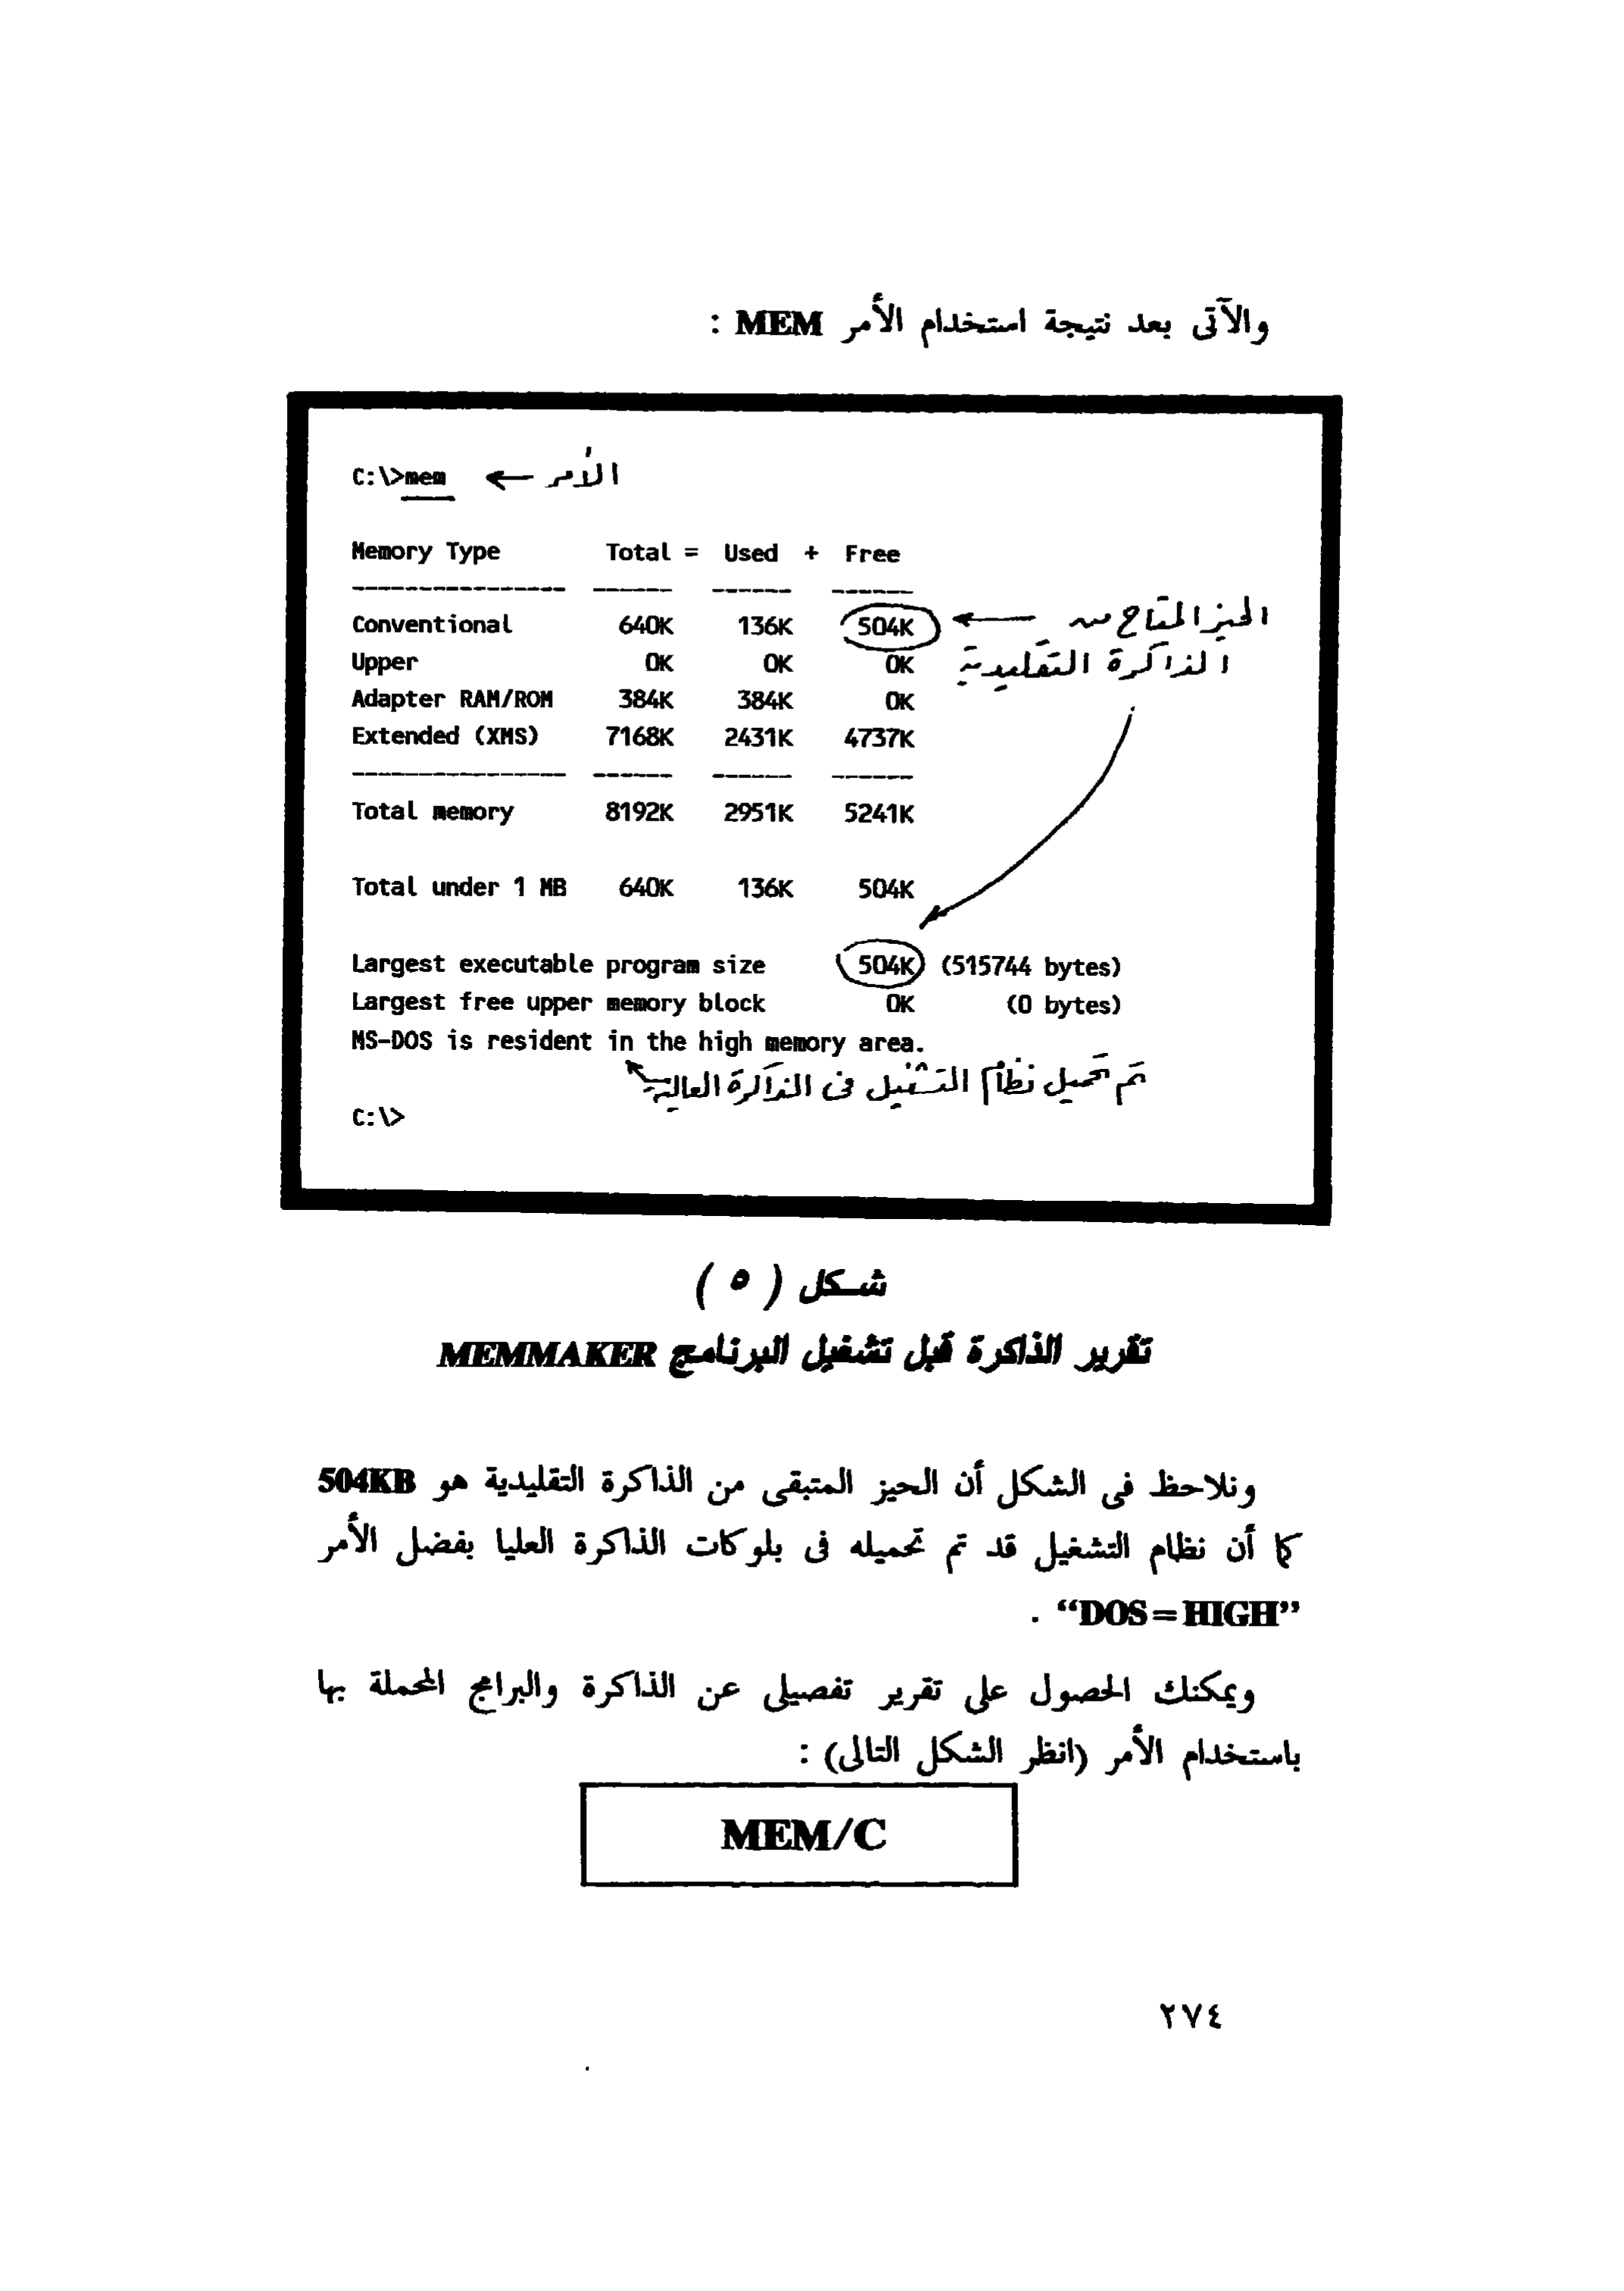 والآتى بعد نتيجة استخدام الأمر MEM :
C:\>mem ← الأمر
Memory Type Total = Used + Free
---------------- ------ ------ ------
Conventional 640K 136K 504K ← الحيز المتاح من
Upper 0K 0K 0K الذاكرة التقليدية
Adapter RAM/ROM 384K 384K 0K
Extended (XMS) 7168K 2431K 4737K
---------------- ------ ------ ------
Total memory 8192K 2951K 5241K
Total under 1 MB 640K 136K 504K
Largest executable program size 504K (515744 bytes)
Largest free upper memory block 0K (0 bytes)
MS-DOS is resident in the high memory area.
تم تحميل نظام التشغيل فى الذاكرة العالية
C:\>
شكل ( ٥ )
تقرير الذاكرة قبل تشغيل البرنامج MEMMAKER
ونلاحظ فى الشكل أن الحيز المتبقى من الذاكرة التقليدية هو 504KB
كما أن نظام التشغيل قد تم تحميله فى بلوكات الذاكرة العليا بفضل الأمر
“DOS=HIGH” .
ويمكنك الحصول على تقرير تفصيلى عن الذاكرة والبرامج المحملة بها
باستخدام الأمر (انظر الشكل التالى) :
MEM/C
٢٧٤